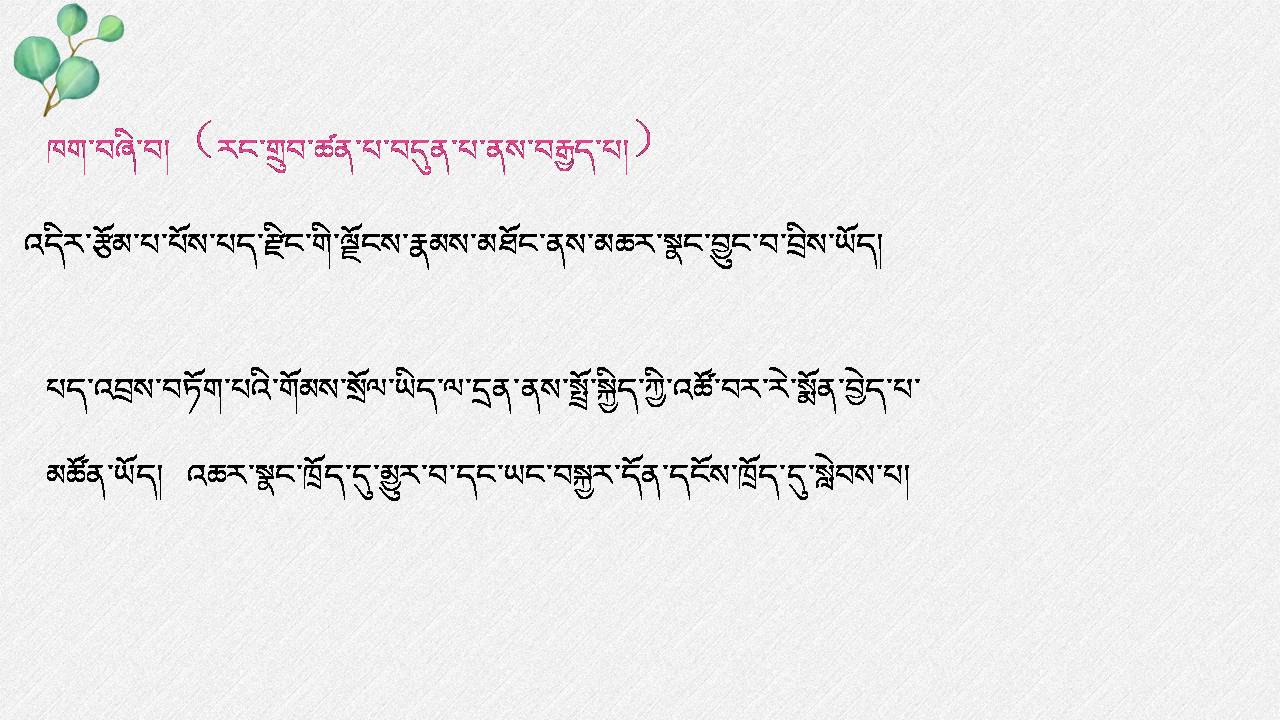 ཁག་བཞི་བ། (རང་གྲུབ་ཚན་པ་བདུན་པ་ནས་བརྒྱད་པ།)
འདིར་རྩོམ་པ་པོས་པད་རྫིང་གི་ལྗོངས་རྣམས་མཐོང་ནས་མཆར་སྣང་བྱུང་བ་བྲིས་ཡོད།
པད་འབྲས་བཏོག་པའི་གོམས་སྲོལ་ཡིད་ལ་དྲན་ནས་སྤྲོ་སྐྱིད་ཀྱི་འཚོ་བར་རེ་སྨོན་བྱེད་པ་
མཚོན་ཡོད། འཆར་སྣང་ཁྲོད་དུ་མྱུར་བ་དང་ཡང་བསྐྱར་དོན་དངོས་ཁྲོད་དུ་སླེབས་པ།